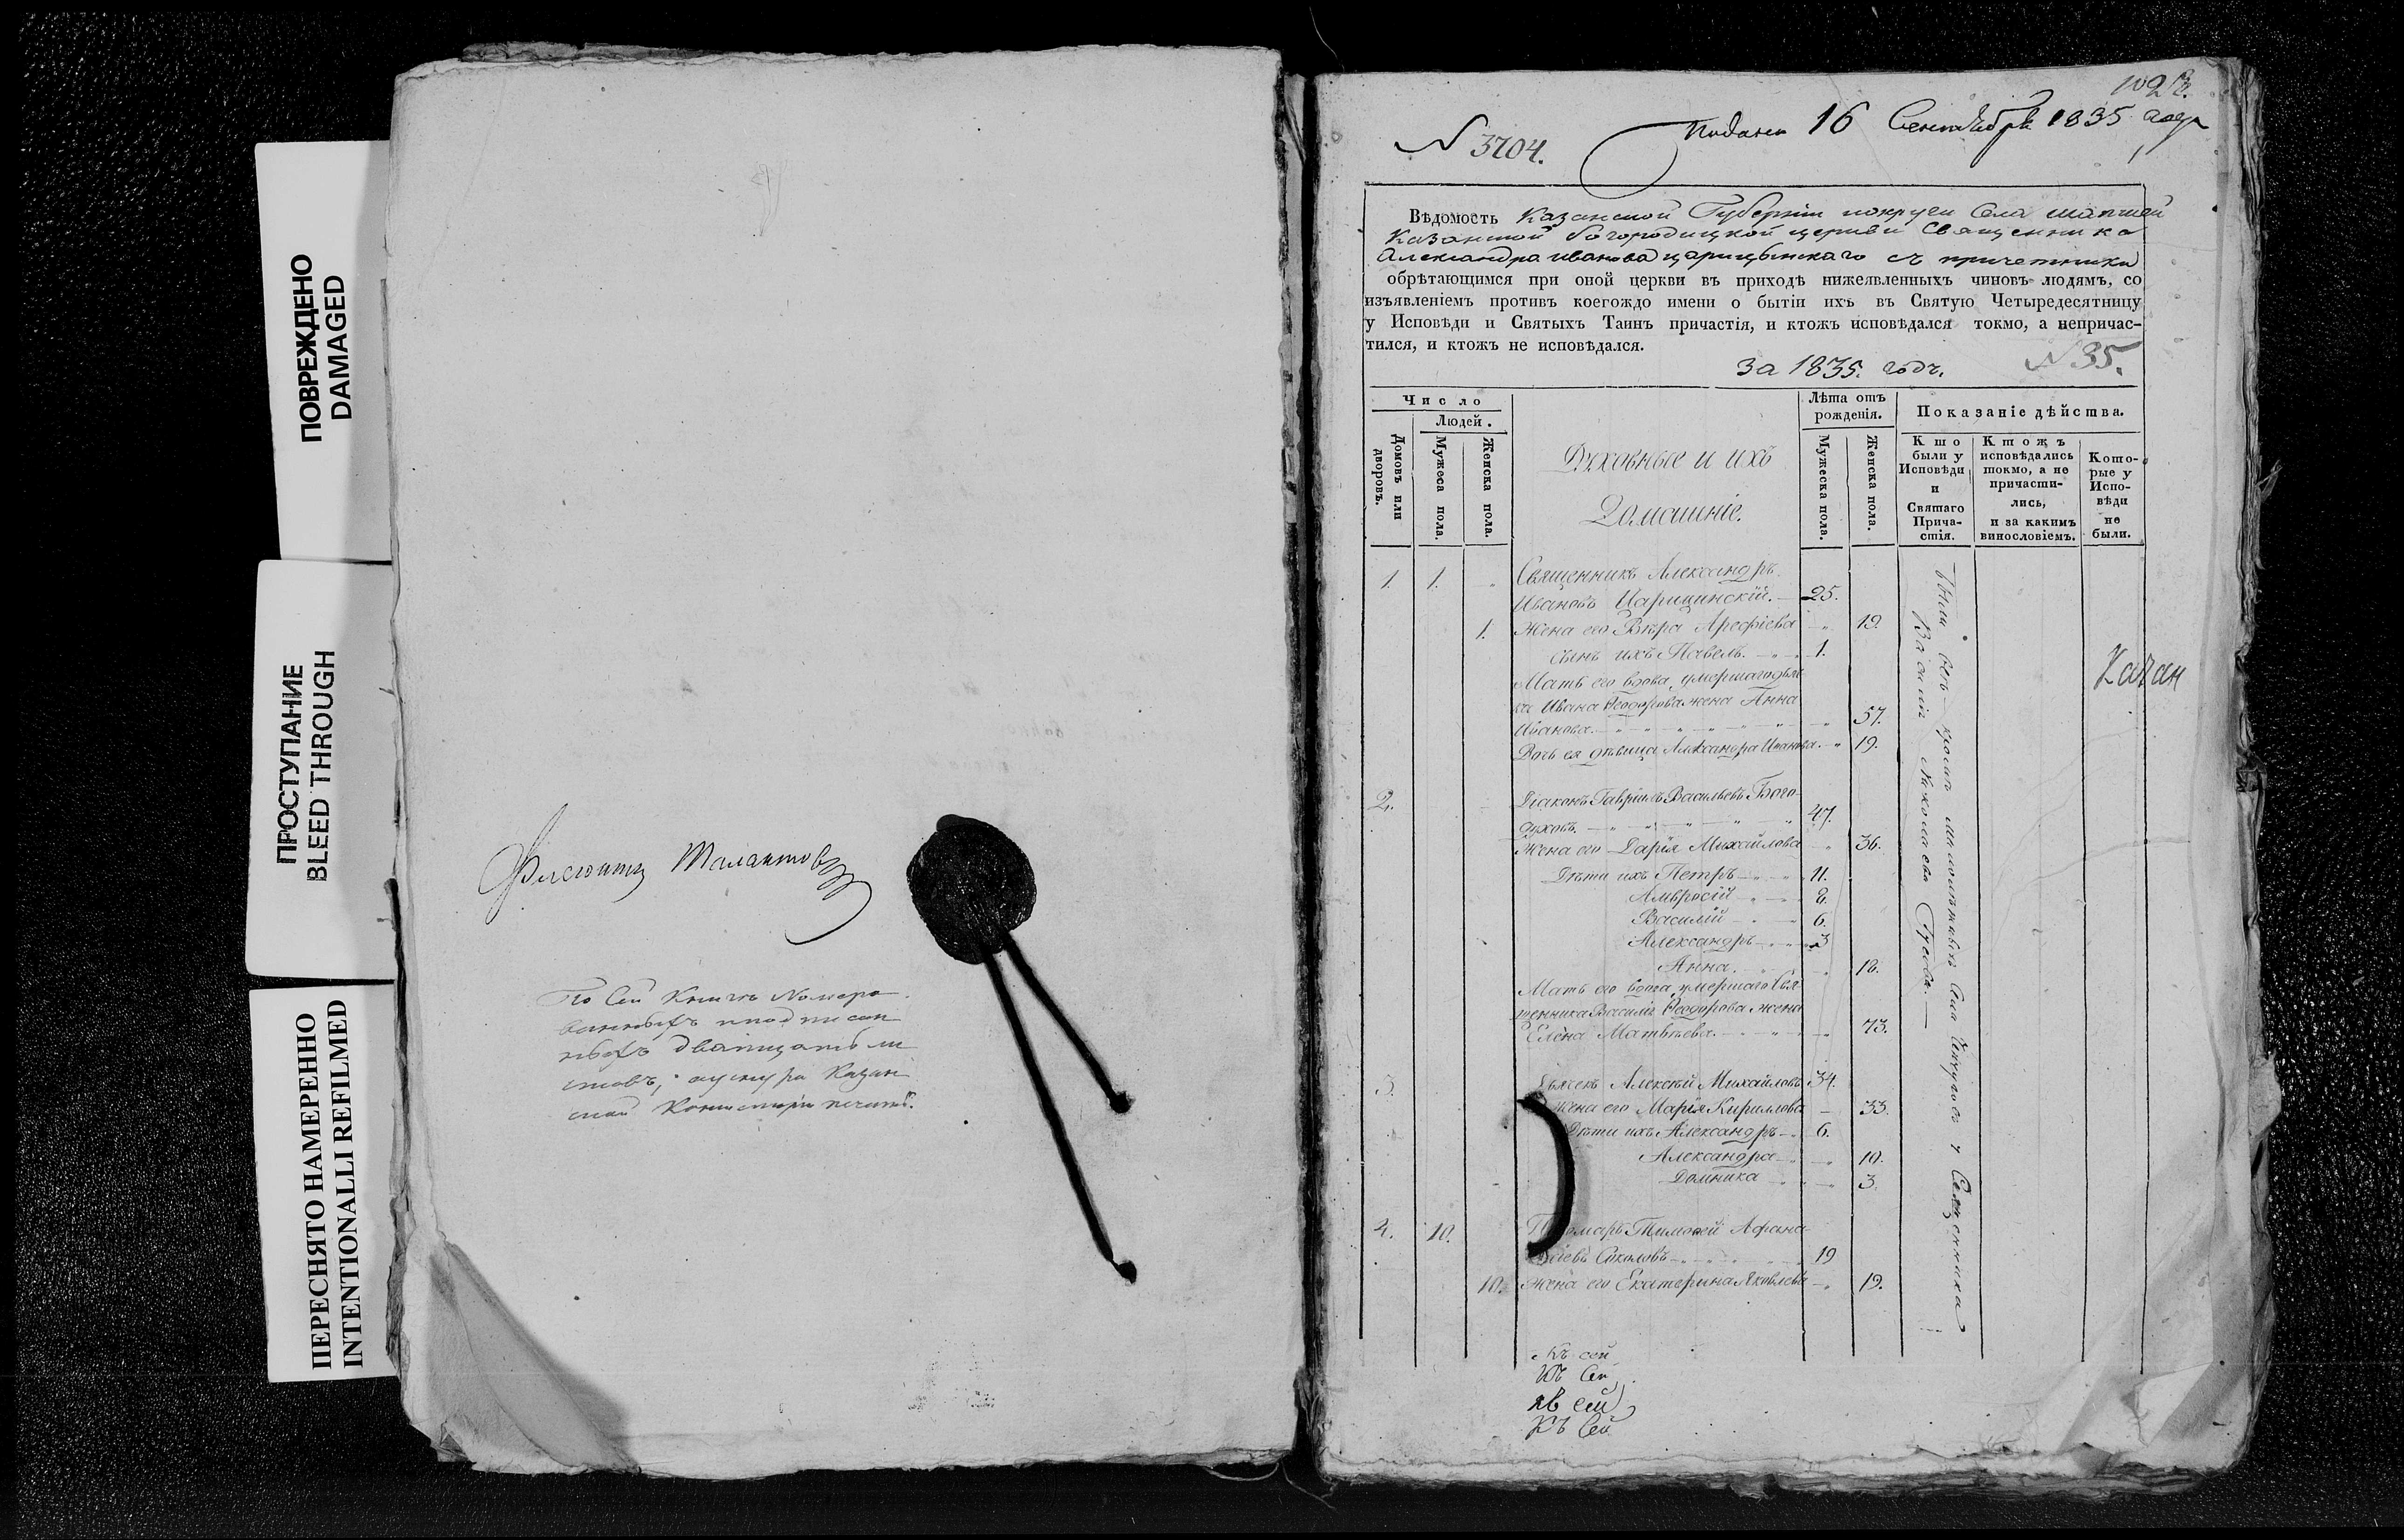 ПОВРЕЖДЕНО
DAMAGED
ПРОСТУПАНИЕ
BLEED THROUGH
ПЕРЕСНЯТО НАМЕРЕННО
INTENTIONALLI REFILMED
Талантовъ
По Сей Книгѣ Номеро
ванныхъ подписан
ныхъ дватцать ли
стовъ, Казан
ской Консисторіи печатью.
N 3704.
Подана 16 Сентября 1835 года
Вѣдомость Казанской Губерніи округи Села Шапшей
Казанской богородицкой церкви Священника
Александра иванова царицынскаго съ причетники
обрѣтающимся при оной церкви въ приходѣ нижеявленныхъ чиновъ людямъ, со
изъявленіемъ противъ коегождо имени о бытіи ихъ въ Святую Четыредесятницу
у Исповѣди и Святыхъ Таинъ причастія, и ктожъ исповѣдался токмо, а непричас-
тился, и ктожъ не исповѣдался.
за 1835. годъ.
N 35.
Число
Людей.
Домовъ или дворовъ.
Мужеса пола.
Женска пола.
Духовные и ихъ
Домашніе.
Лѣта отъ рожденія.
Мужеска пола.
Женска пола.
Показаніе дѣйства.
Кто были у Исповѣди и Святаго Прича-стія.
Ктожъ исповѣдались токмо, а не причасти-лись, и за какимъ винословіемъ.
Кото-рые у Испо-вѣди не были.
1. 1. Священникъ Александръ
Ивановъ Царицинскій. 25.
1. Жена его Вѣра Арефіева 19.
сынъ ихъ Павелъ. 1.
Мать его вдова, умершаго дьяч
ка Ивана Ѳеодорова жена Анна
Иванова. 57.
Дочь ея дѣвица Александра Иванова. 19.
2. Діаконъ Гавріилъ Васильевъ Бого-
духовъ. 47.
Жена его Дарія Михайлова 36.
Дѣти ихъ Петръ 11.
Амвросій 8.
Василій 6.
Александръ 3
Анна. 18.
Мать его вдова, умершаго Свя
щенника Василія Ѳеодорова жена
Елена Матвѣева. 73.
3. Дьячекъ Алексѣй Михайловъ 34.
Жена его Марія Кирилова 33.
Дѣти ихъ Александръ 6.
Александра 10.
Домника 3.
4. 10. Пономарь Тимоѳей Афана
сіевъ Соколовъ 19
10. Жена его Екатерина Яковлева 19.
были всѣ кромѣ малолѣтныхъ Села у Священника
Василія Николаева Гусева.
Казан
Къ сей
Къ Сей
къ сей
Къ Сей